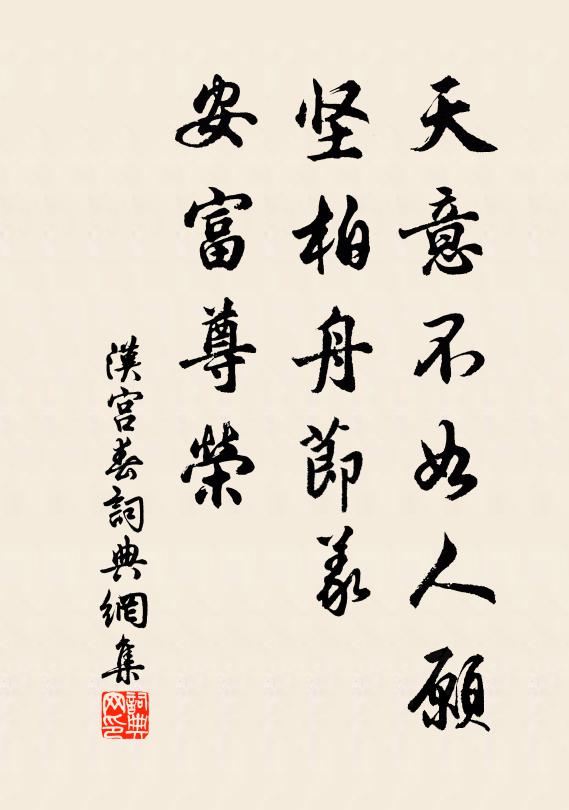 天意不如人願
坚柏舟節義
安富尊榮
漢宮春詞典網集
詞典网印